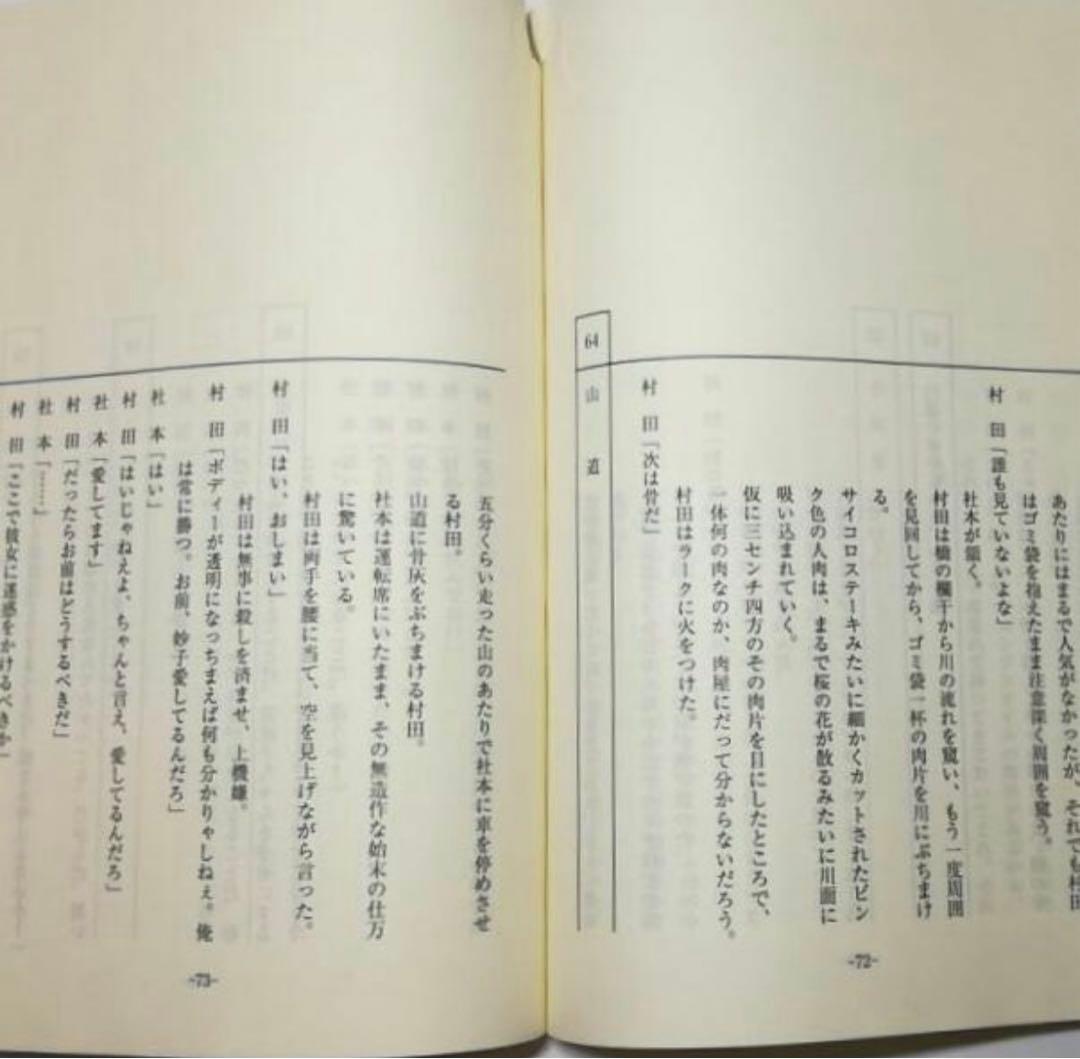 あたりにはまるで人気がなかったが、それでも村田
はゴミ袋を抱えたまま注意深く周囲を窺う。
村　田「誰も見ていないよな」
社本が頷く。
村田は橋の欄干から川の流れを窺い、もう一度周囲
を見回してから、ゴミ袋一杯の肉片を川にぶちまけ
る。
サイコロステーキみたいに細かくカットされたピン
ク色の人肉は、まるで桜の花が散るみたいに川面に
吸い込まれていく。
仮に三センチ四方のその肉片を目にしたところで、
一体何の肉なのか、肉屋にだって分からないだろう。
村田はラークに火をつけた。
村　田「次は骨だ」
64　山　道
-72-
五分くらい走った山のあたりで社本に車を停めさせ
る村田。
山道に骨灰をぶちまける村田。
社本は運転席にいたまま、その無造作な始末の仕方
に驚いている。
村田は両手を腰に当て、空を見上げながら言った。
村　田「はい、おしまい」
村田は無事に殺しを済ませ、上機嫌。
村　田「ボディーが透明になっちまえば何も分かりゃしねぇ。俺
は常に勝つ。お前、妙子愛してるんだろ」
社　本「はい」
村　田「はいじゃねえよ、ちゃんと言え、愛してるんだろ」
社　本「愛してます」
村　田「だったらお前はどうするべきだ」
社　本「……」
村　田「ここで彼女に迷惑をかけるべきか
-73-